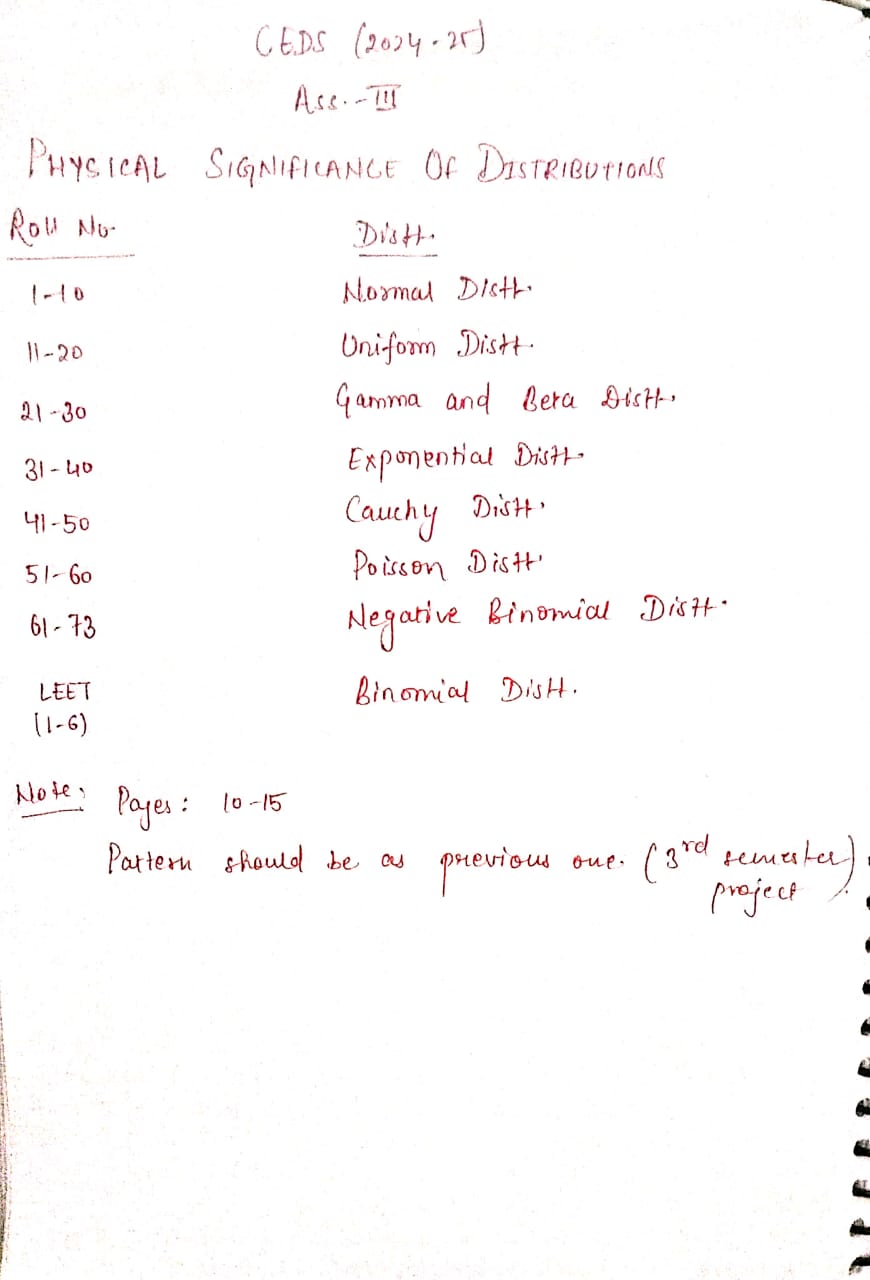 CEDS (2024-25)
Ass.-III
PHYSICAL SIGNIFICANCE OF DISTRIBUTIONS
Roll No. Distt.
1-10 Normal Distt.
11-20 Uniform Distt.
21-30 Gamma and Beta Distt.
31-40 Exponential Distt.
41-50 Cauchy Distt.
51-60 Poisson Distt.
61-73 Negative Binomial Distt.
LEET Binomial Distt.
(1-6)
Note: Pages: 10-15
Pattern should be as previous one. (3rd semester)
project